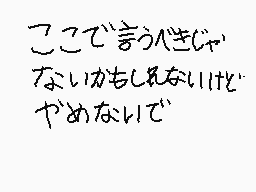 ここで言うべきじゃ
ないかもしれないけど
やめないで